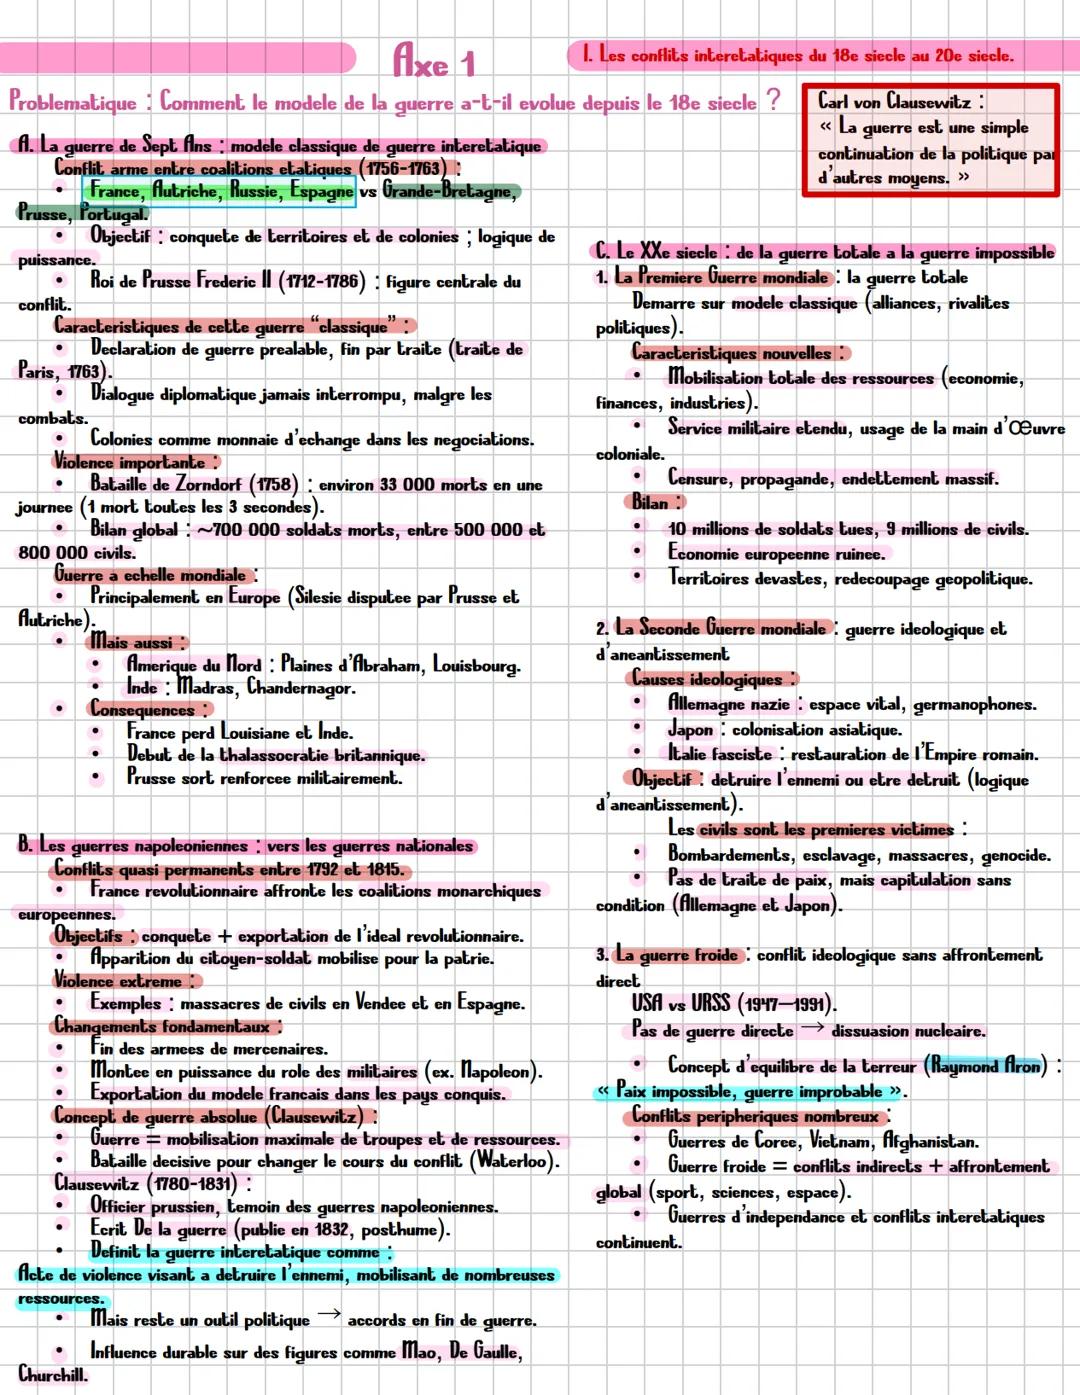 Axe 1
I. Les conflits interetatiques du 18e siecle au 20e siecle.
Problematique : Comment le modele de la guerre a-t-il evolue depuis le 18e siecle ?
Carl von Clausewitz :
« La guerre est une simple
continuation de la politique par
d'autres moyens. »
A. La guerre de Sept Ans : modele classique de guerre interetatique
Conflit arme entre coalitions etatiques (1756-1763) :
• France, Autriche, Russie, Espagne vs Grande-Bretagne,
Prusse, Portugal.
• Objectif : conquete de territoires et de colonies ; logique de
puissance.
• Roi de Prusse Frederic II (1712-1786) : figure centrale du
conflit.
Caracteristiques de cette guerre “classique” :
• Declaration de guerre prealable, fin par traite (traite de
Paris, 1763).
• Dialogue diplomatique jamais interrompu, malgre les
combats.
• Colonies comme monnaie d'echange dans les negociations.
Violence importante :
• Bataille de Zorndorf (1758) : environ 33 000 morts en une
journee (1 mort toutes les 3 secondes).
• Bilan global : ~700 000 soldats morts, entre 500 000 et
800 000 civils.
Guerre a echelle mondiale :
• Principalement en Europe (Silesie disputee par Prusse et
Autriche).
• Mais aussi :
• Amerique du Nord : Plaines d'Abraham, Louisbourg.
• Inde : Madras, Chandernagor.
• Consequences :
• France perd Louisiane et Inde.
• Debut de la thalassocratie britannique.
• Prusse sort renforcee militairement.
B. Les guerres napoleoniennes : vers les guerres nationales
Conflits quasi permanents entre 1792 et 1815.
• France revolutionnaire affronte les coalitions monarchiques
europeennes.
Objectifs : conquete + exportation de l'ideal revolutionnaire.
• Apparition du citoyen-soldat mobilise pour la patrie.
Violence extreme :
• Exemples : massacres de civils en Vendee et en Espagne.
Changements fondamentaux :
• Fin des armees de mercenaires.
• Montee en puissance du role des militaires (ex. Napoleon).
• Exportation du modele francais dans les pays conquis.
Concept de guerre absolue (Clausewitz) :
• Guerre = mobilisation maximale de troupes et de ressources.
• Bataille decisive pour changer le cours du conflit (Waterloo).
Clausewitz (1780-1831) :
• Officier prussien, temoin des guerres napoleoniennes.
• Ecrit De la guerre (publie en 1832, posthume).
• Definit la guerre interetatique comme :
Acte de violence visant a detruire l'ennemi, mobilisant de nombreuses
ressources.
• Mais reste un outil politique → accords en fin de guerre.
• Influence durable sur des figures comme Mao, De Gaulle,
Churchill.
C. Le XXe siecle : de la guerre totale a la guerre impossible
1. La Premiere Guerre mondiale : la guerre totale
Demarre sur modele classique (alliances, rivalites
politiques).
Caracteristiques nouvelles :
• Mobilisation totale des ressources (economie,
finances, industries).
• Service militaire etendu, usage de la main d'œuvre
coloniale.
• Censure, propagande, endettement massif.
Bilan :
• 10 millions de soldats tues, 9 millions de civils.
• Economie europeenne ruinee.
• Territoires devastes, redecoupage geopolitique.
2. La Seconde Guerre mondiale : guerre ideologique et
d'aneantissement
Causes ideologiques :
• Allemagne nazie : espace vital, germanophones.
• Japon : colonisation asiatique.
• Italie fasciste : restauration de l'Empire romain.
Objectif : detruire l'ennemi ou etre detruit (logique
d'aneantissement).
Les civils sont les premieres victimes :
• Bombardements, esclavage, massacres, genocide.
• Pas de traite de paix, mais capitulation sans
condition (Allemagne et Japon).
3. La guerre froide : conflit ideologique sans affrontement
direct
USA vs URSS (1947–1991).
Pas de guerre directe → dissuasion nucleaire.
• Concept d'equilibre de la terreur (Raymond Aron) :
« Paix impossible, guerre improbable ».
Conflits peripheriques nombreux :
• Guerres de Coree, Vietnam, Afghanistan.
• Guerre froide = conflits indirects + affrontement
global (sport, sciences, espace).
• Guerres d'independance et conflits interetatiques
continuent.